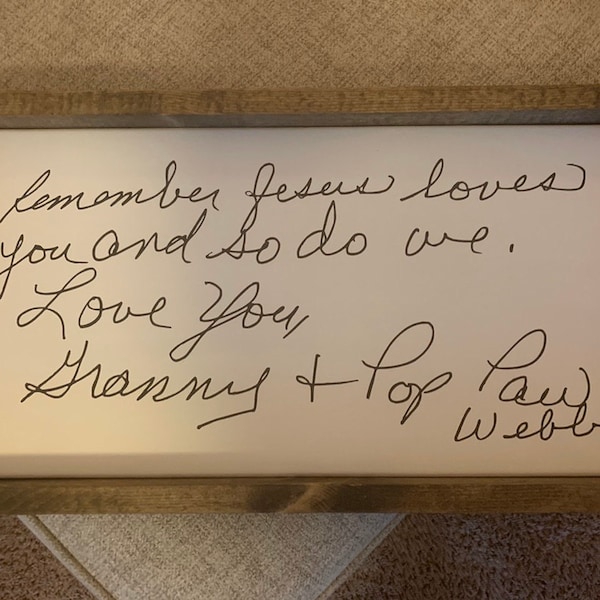 Remember Jesus loves
you and so do we.
Love You,
Granny + Pop Paw
Webb